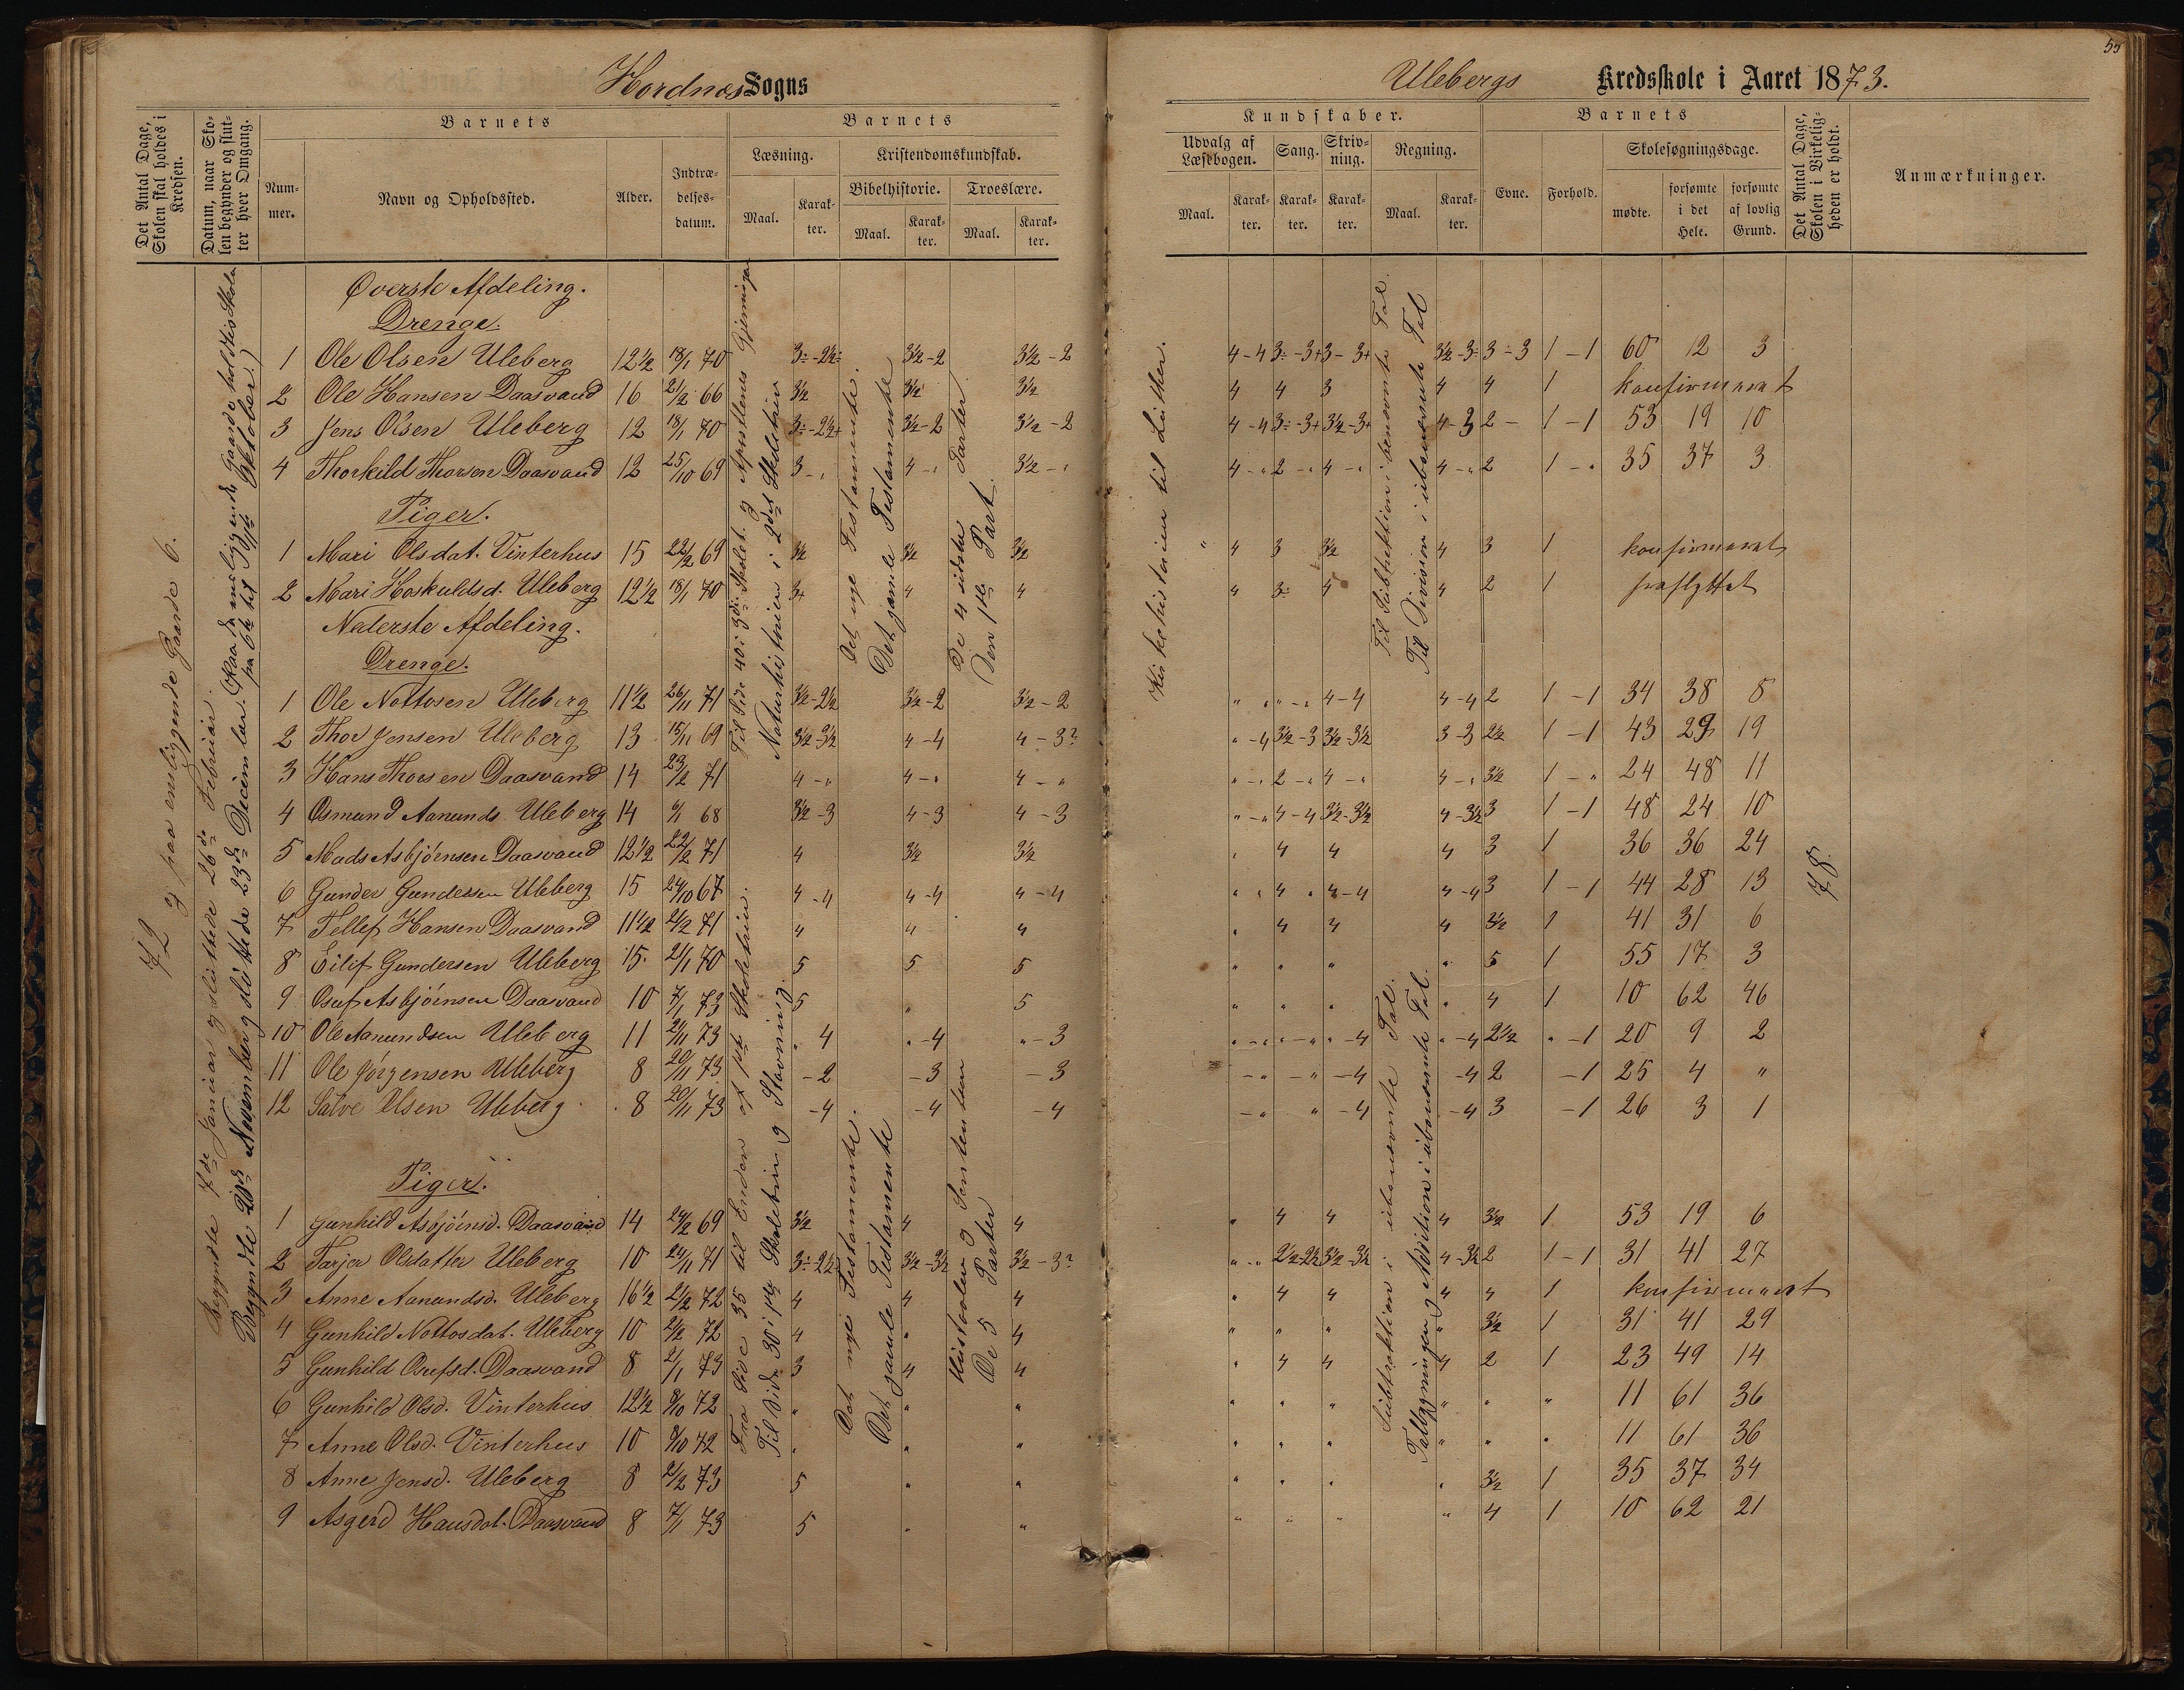 55
Hordnæs Sogns
Ulebergs Kredsskole i Aaret 1873.
Det Antal Dage, Skolen skal holdes i Kredsen.
Datum, naar Skolen begynder og slutter hver Omgang.
Barnets
Nummer.
Navn og Opholdssted.
Alder.
Indtrædelsesdatum.
Barnets
Læsning.
Maal.
Karakter.
Kristendomskundskab.
Bibelhistorie.
Maal.
Karakter.
Troeslære.
Maal.
Karakter.
Kundskaber.
Udvalg af Læsebogen.
Maal.
Karakter.
Sang.
Karakter.
Skrivning.
Karakter.
Regning.
Maal.
Karakter.
Barnets
Evne.
Forhold.
Skolesøgningsdage.
mødte.
forsømte i det Hele.
forsømte af lovlig Grund.
Det Antal Dage, Skolen i Virkeligheden er holdt.
Anmærkninger.
72 og paa ensliggende Gaarde 6.
Begyndte 7de Januar og sluttede 26de Februar.
Begyndte 20de November og sluttede 23de December. (Paa de ensliggende Gaarde holdtes Skole fra 6te til Oktober)
Øverste Afdeling.
Drenge.
1 Ole Olsen Uleberg 12½ 18/1 70 3÷-2½÷ 3½-2 3½-2 4-4 3÷-3+ 3-3+ 3½-3÷ 3÷3 1-1 60 12 3
2 Ole Hansen Daasvand 16 21/2 66 3½ 3½ 3½ 4 4 3 4 4 1 konfirmeret
3 Jens Olsen Uleberg 12 18/1 70 3÷-2½+ 3½-2 3½-2 4-4 3÷-3+ 3½-3+ 4-3 2- 1-1 53 19 10
4 Thorkild Thorsen Daasvand 12 25/10 69 3-„ 4-„ 3½-„ 4-„ 2-„ 4-„ 4-„ 2 1-„ 35 37 3
Piger.
1 Mari Olsdat. Vinterhus 15 22/2 69 3½ 3½ 3½ 4 3 3½ 4 3 1 konfirmeret
2 Mari Hoskuldsd. Uleberg 12½ 18/1 70 3+ 4 4 4 3÷ 4 4 2 1 fraflyttet
Til Side 40 i 3die Skolet. og Apostlenes Gjerninger
Naturhistorien i 2det Skoletrin
Det nye Testamente.
Det gamle Testamente
De 4 sidste Parter
Den 1ste Part.
Kirkehistorien til Luther.
Til Subtraktion i benævnte Tal.
Til Division i ubenævnte Tal
Nederste Afdeling.
Drenge.
1 Ole Nottosen Uleberg 11½ 26/11 71 3½-2½ 3½-2 3½-2 „ „ „-„ 4-4 4-4 2 1-1 34 38 8
2 Thor Jensen Uleberg 13 15/11 69 3½-3½ 4-4 4-3? „-4 3½-3 3½-3½ 3-3 2½ 1-1 43 29 19
3 Hans Thorsen Daasvand 14 23/2 71 4-„ 4-„ 4-„ „-„ 2-„ 4-„ 4-„ 3½ 1-„ 24 48 11
4 Osmund Aanunds. Uleberg 14 68 3½-3 4-3 4-3 „-„ 4-4 3½-3½ 4-3½ 3 1-1 48 24 10
5 Mads Asbjørnsen Daasvand 12½ 22/2 71 4 3½ 3½ „ 4 4 4 3 1 36 36 24
6 Gunder Gundersen Uleberg 15 24/10 67 4-4 4-4 4-4 „ „ 4 „ 4-4 4-4 3 1-1 44 28 13
7 Tellef Hansen Daasvand 11½ 21/2 71 4 4 4 „ 4 4 4 3½ 1 41 31 6
8 Eilif Gundersen Uleberg 15 21/1 70 5 5 5 „ „ „ „ 5 1 55 17 3
9 Osuf Asbjørnsen Daasvand 10 7/1 73 5 „ 5 „ „ „ „ 4 1 10 62 46
10 Ole Aanundsen Uleberg 11 21/11 73 „ 4 „-4 „-3 „-„ „-„ „-4 „-4 2½ „-1 20 9 2
11 Ole Jörgensen Uleberg 8 20/11 73 -2 -3 -3 -„ -„ -4 -4 2 -1 25 4 „
12 Salve Olsen Uleberg 8 20/11 73 -4 -4 -4 -„ „ -4 -4 3 -1 26 3 1
78
Piger.
1 Gunhild Asbjörnsd. Daasvand 14 24/2 69 3½ 4 4 „ 4 4 4 3½ 1 53 19 6
2 Tarjer Olsdatter Uleberg 10 24/11 71 3÷-2½ 3½-3½ 3½-3? „-„ 2½-2½ 3½-3½ 4-3½ 2 1-1 31 41 27
3 Anne Aanundsd. Uleberg 16½ 21/2 72 4 4 4 „ 4 4 4 4 1 konfirmeret
4 Gunhild Nottosdat. Uleberg 10 21/2 72 4 „ 4 „ „ „ „ 3½ 1 31 41 29
5 Gunhild Osufsd. Daasvand 8 2/1 73 3 4 4 „ 4 4 4 2 1 23 49 14
6 Gunhild Olsd. Vinterhus 12½ 8/10 72 „ „ „ „ „ „ „ „ „ 11 61 36
7 Anne Olsd. Vinterhus 10 8/10 72 „ „ „ „ „ „ „ „ „ 11 61 36
8 Anne Jensd. Uleberg 8 21/2 73 5 „ „ „ „ „ „ 3½ 1 35 37 34
9 Asgerd Hansdat. Daasvand 8 7/1 73 5 „ „ „ „ „ „ 4 1 10 62 21
Fra Side 35 til Enden af 1ste Skoletrin.
Til Side 30 i 1ste Skoletrin og Stavning
Det nye Testamente.
Det gamle Testamente
De 5 Parter
Subtraktion i ubenævnte Tal.
Tællegningen og Addition i ubenævnte Tal.